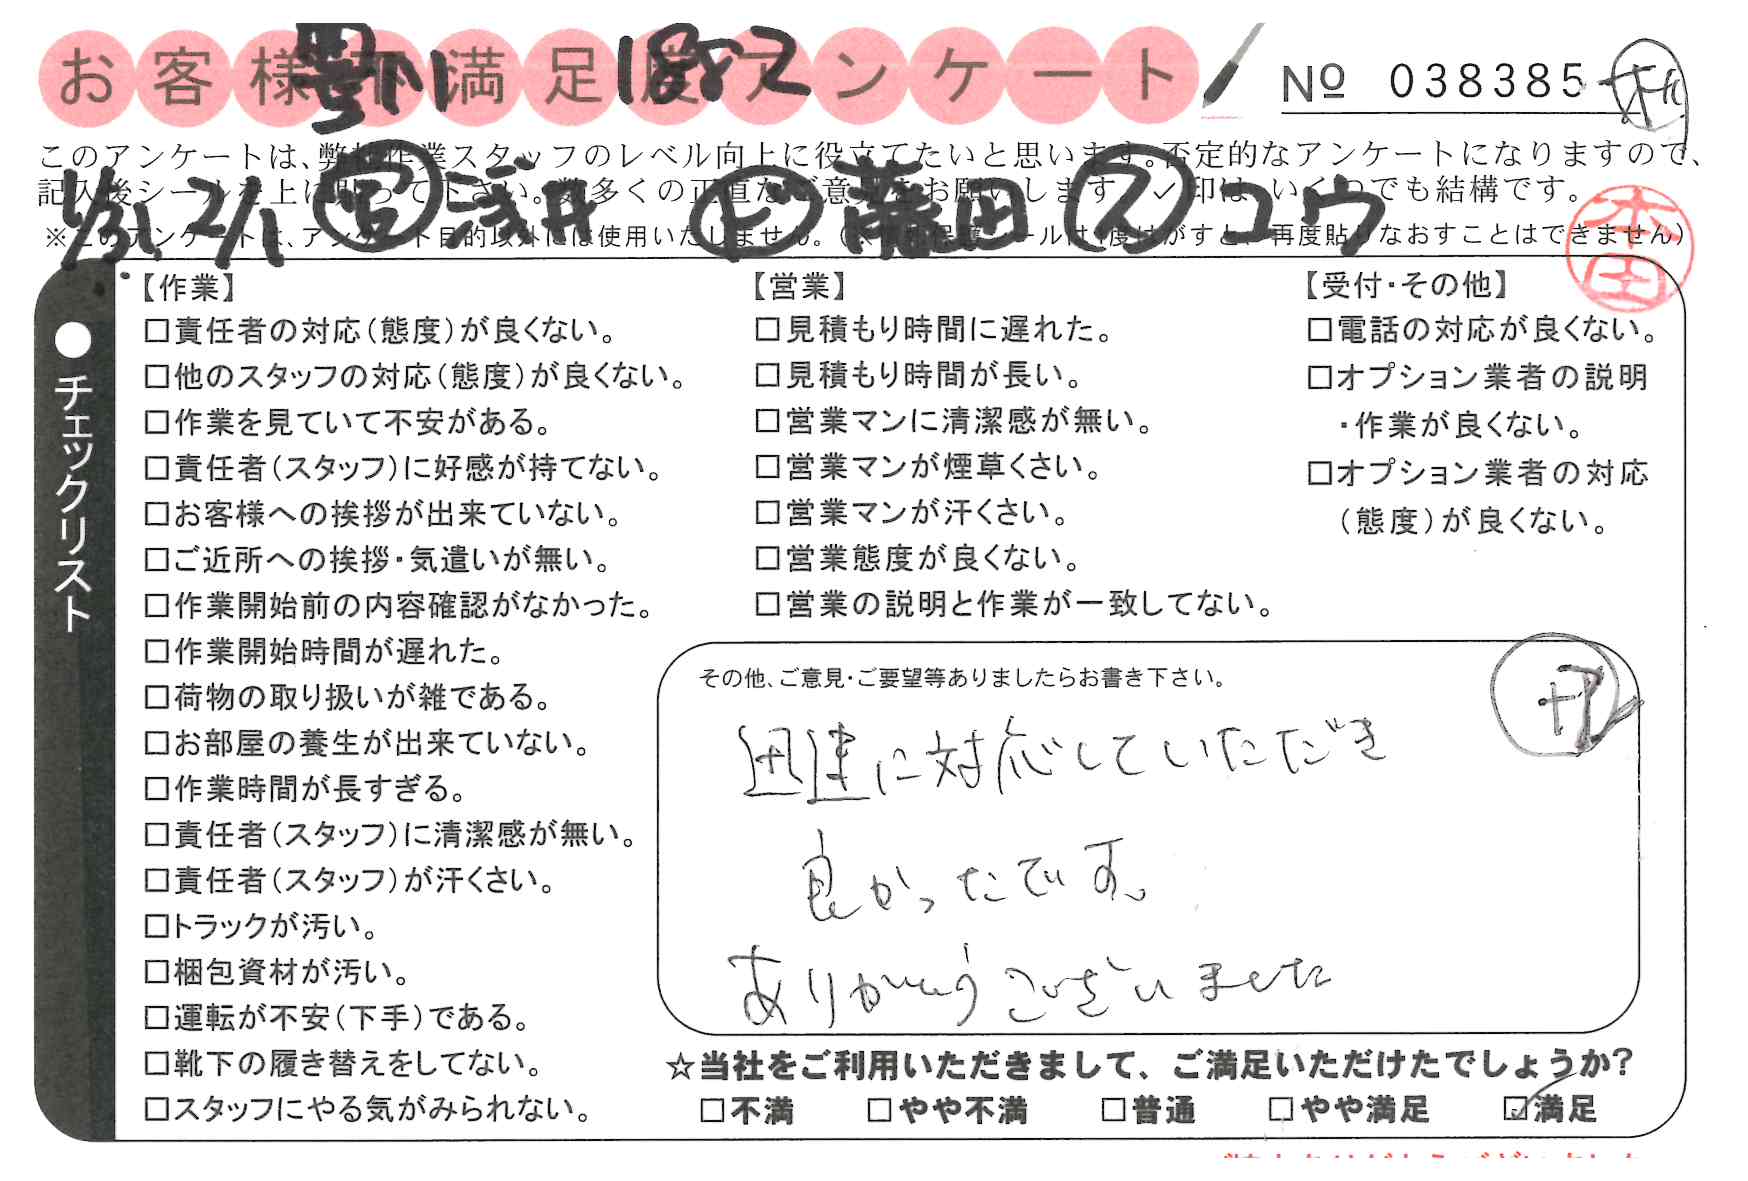 お客様不満足度アンケート
1882
№ 038385
このアンケートは、弊社作業スタッフのレベル向上に役立てたいと思います。否定的なアンケートになりますので、
記入後シールを上に貼って下さい。数多くの正直なご意見をお願いします ✓印は、いくつでも結構です。
1/31 2/1 浮井 藤田 ス ユウ
本田
●チェックリスト
【作業】
□責任者の対応(態度)が良くない。
□他のスタッフの対応(態度)が良くない。
□作業を見ていて不安がある。
□責任者(スタッフ)に好感が持てない。
□お客様への挨拶が出来ていない。
□ご近所への挨拶・気遣いが無い。
□作業開始前の内容確認がなかった。
□作業開始時間が遅れた。
□荷物の取り扱いが雑である。
□お部屋の養生が出来ていない。
□作業時間が長すぎる。
□責任者(スタッフ)に清潔感が無い。
□責任者(スタッフ)が汗くさい。
□トラックが汚い。
□梱包資材が汚い。
□運転が不安(下手)である。
□靴下の履き替えをしてない。
□スタッフにやる気がみられない。
【営業】
□見積もり時間に遅れた。
□見積もり時間が長い。
□営業マンに清潔感が無い。
□営業マンが煙草くさい。
□営業マンが汗くさい。
□営業態度が良くない。
□営業の説明と作業が一致してない。
【受付・その他】
□電話の対応が良くない。
□オプション業者の説明
・作業が良くない。
□オプション業者の対応
(態度)が良くない。
その他、ご意見・ご要望等ありましたらお書き下さい。
迅速に対応していただき
良かったです。
ありがとうございました
☆当社をご利用いただきまして、ご満足いただけたでしょうか?
□不満 □やや不満 □普通 □やや満足 ☑満足